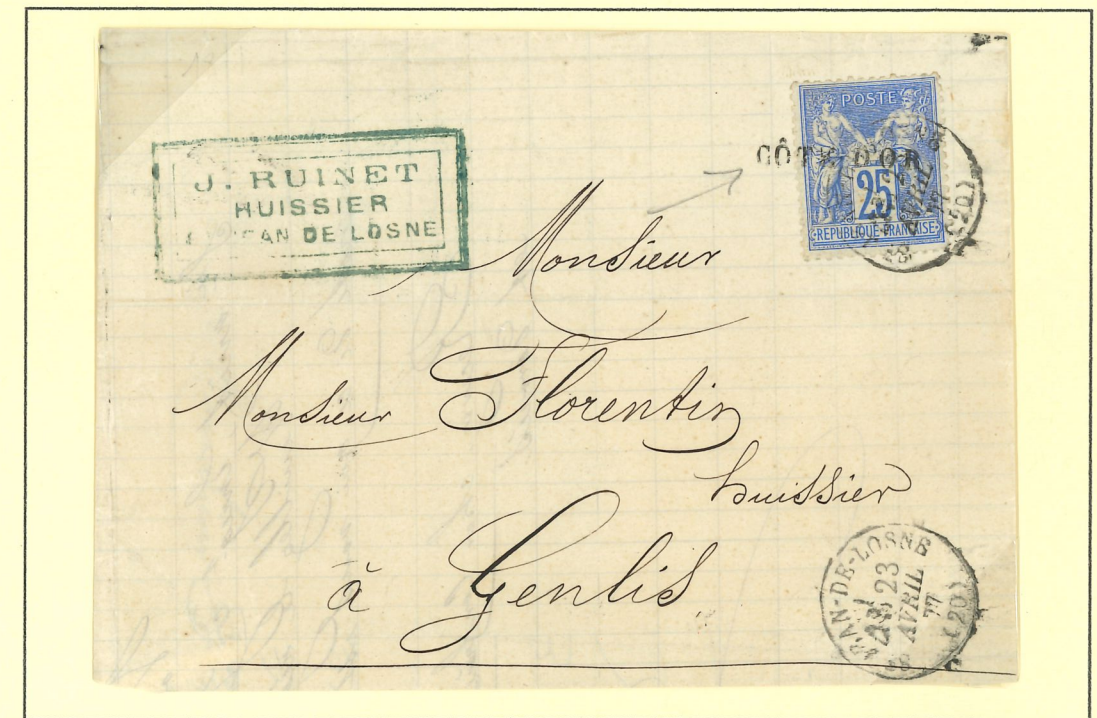 J. RUINET
HUISSIER
JEAN DE LOSNE
POSTE
CÔTE-D'OR
25
REPUBLIQUE FRANÇAISE
AVRIL
(20)
Monsieur
Monsieur Florentin
huissier
à Genlis
JEAN-DE-LOSNE
23
AVRIL
77
(20)